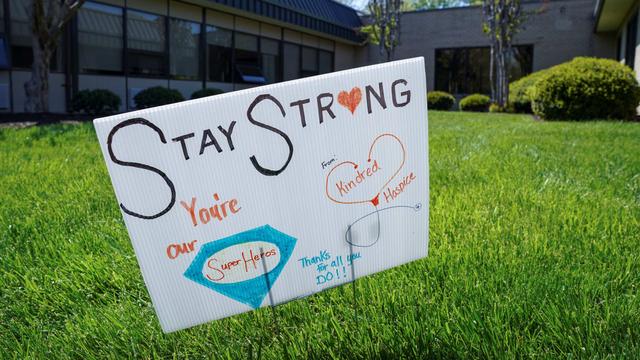 STAY STRONG
You're
our
SuperHeros
From:
Kindred
Hospice
Thanks
for all you
DO!!